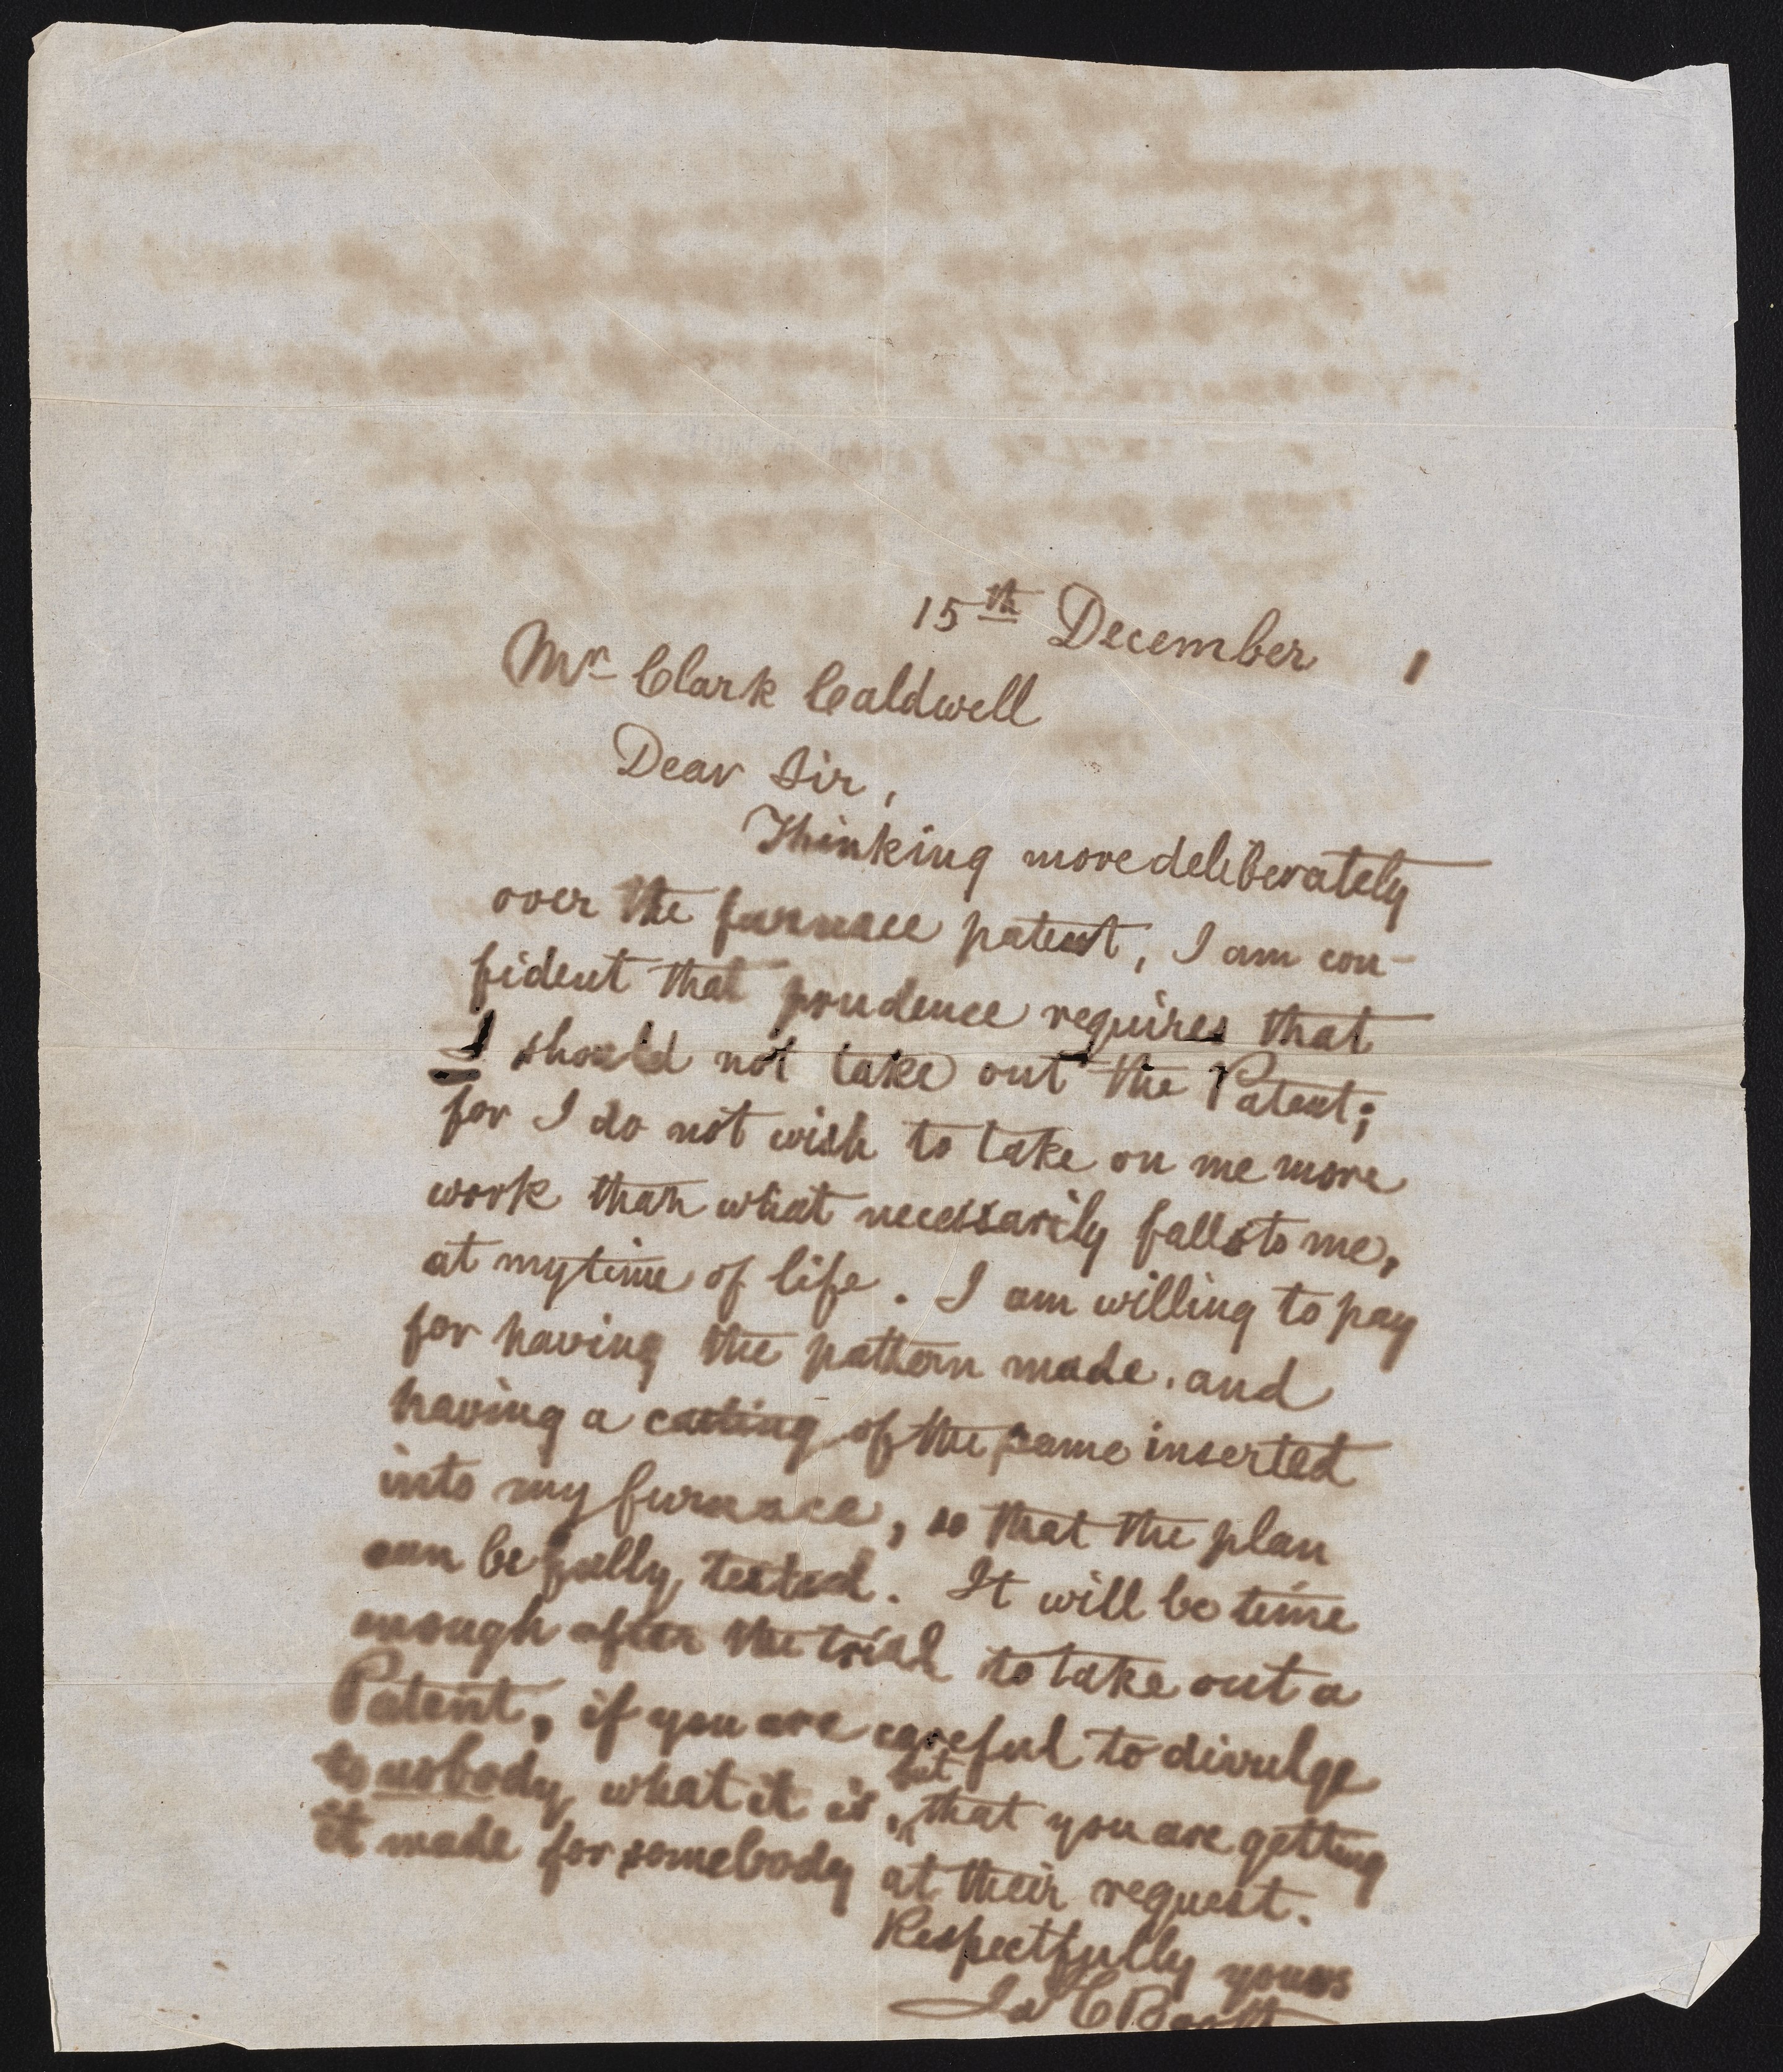 15th December 1
Mr Clark Caldwell
Dear Sir,
Thinking more deliberately
over the furnace patent, I am con-
fident that prudence requires that
I should not take out the Patent;
for I do not wish to take on me more
work than what necessarily falls to me,
at my time of life. I am willing to pay
for having the pattern made, and
having a casting of the same inserted
into my furnace, so that the plan
can be fully tested. It will be time
enough after the trial to take out a
Patent, if you are careful to divulge
to nobody what it is, but that you are getting
it made for somebody at their request.
Respectfully yours
Ja' C Booth